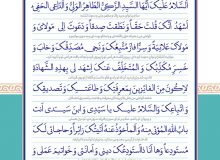 اَلسَّلامُ عَلَيْكَ اَيُّهَا السَّيِّدُ الزَّكِيُّ الطّاهِرُ الْوَلِيُّ وَالدّاعِي الْحَفِيُّ
اَشْهَدُ اَنَّكَ قُلْتَ حَقّاً وَ نَطَقْتَ صِدْقاً وَ دَعَوْتَ اِلى مَوْلايَ وَ
مَوْلاكَ عَلانِيَةً وَ سِرّاً فازَ مُتَّبِعُكَ وَ نَجى مُصَدِّقُكَ وَ خابَ وَ
خَسِرَ مُكَذِّبُكَ وَ الْمُتَخَلِّفُ عَنْكَ اِشْهَدْ لي بِهذِهِ الشَّهادَةِ
لِاَكُونَ مِنَ الْفائِزينَ بِمَعْرِفَتِكَ وَ طاعَتِكَ وَ تَصْديقِكَ
وَ اتِّباعِكَ وَ السَّلامُ عَلَيْكَ يا سَيِّدي وَ ابْنَ سَيِّدي اَنْتَ
بابُ اللهِ الْمُؤْتى مِنْهُ وَ الْمَأْخُوذُ عَنْهُ اَتَيْتُكَ زائِراً وَ حاجاتي لَكَ
مُسْتَوْدِعاً وَ ها اَنَا ذا اَسْتَوْدِعُكَ ديني وَ اَمانَتي وَ خَواتيمَ عَمَلي وَ